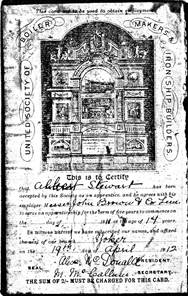 This card not to be used to obtain employment
UNITED SOCIETY OF BOILER MAKERS & IRON SHIP BUILDERS
This is to Certify
that Albert Stewart has been
accepted by this Society as an apprentice, and he agrees with his
employer Messrs John Brown & Co Ltd
to serve an apprenticeship for the term of five years to commence on
the age of 17 years.
In witness whereof we have subscribed our names, and affixed
the seal of our
the 19th day of April 1912
PRESIDENT.
SEAL
SECRETARY.
THE SUM OF 2/- MUST BE CHARGED FOR THIS CARD.